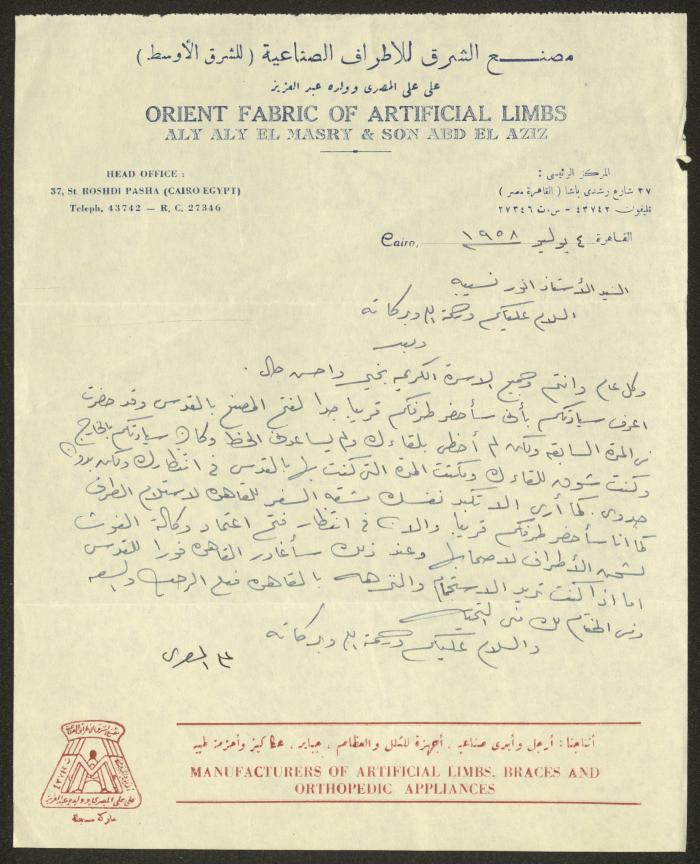 مصنع الشرق للاطراف الصناعية ( للشرق الأوسط )
على على المصرى وولده عبد العزيز
ORIENT FABRIC OF ARTIFICIAL LIMBS
ALY ALY EL MASRY & SON ABD EL AZIZ
HEAD OFFICE :
37, St. ROSHDI PASHA (CAIRO EGYPT)
Teleph. 43742 — R. C. 27346
المركز الرئيسى :
٣٧ شارع رشدى باشا ( القاهرة مصر )
تليفون ٤٣٧٤٢ - س.ت ٢٧٣٤٦
Cairo, القاهرة ٤ يوليو ١٩٥٨
السيد الأستاذ انور نسيبه
السلام عليكم ورحمة الله وبركاته
وبعد
وكل عام وانتم وجميع الاسرة الكريمه بخير واحسن حال .
اعرف سيادتكم بأنى سأحضر طرفكم قريبا جدا لفتح المصنع بالقدس وقد حضرت
فى المرة السابقه ولكن لم أحظى بلقاءك ولم يساعدنى الحظ وكان سيادتكم بالخارج
وكنت شوق للقاءك ومكثت المدة التى كنت بها بالقدس فى انتظارك ولكن بدون
جدوى . كما أرى الا تكبد نفسك مشقه السفر للقاهرة لاستلام الطرف
كما انا سأحضر طرفكم قريبا والان فى انتظار فتح اعتماد وكالة الغوث
لشحن الأطراف لاصحابها وعند ذلك سأغادر القاهرة فورا للقدس
اما اذا كنت تريد الاستجمام والنزهه بالقاهرة فعلى الرحب والسعه
وفى الختام لك منى التحيه
والسلام عليكم ورحمة الله وبركاته
على المصرى
انتاجنا : أرجل وأيدى صناعيه ، أجهزة للشلل والعظام ، جباير ، عكاكيز وأحزمة طبيه
MANUFACTURERS OF ARTIFICIAL LIMBS, BRACES AND
ORTHOPEDIC APPLIANCES
على على المصرى وولده عبد العزيز
ماركة مسجلة